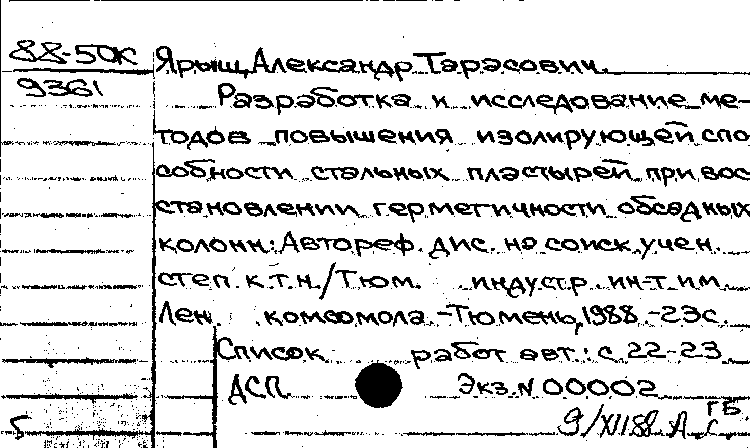 88-50К
9361
Ярыщ, Александр Тарасович.
Разработка и исследование ме-
тодов повышения изолирующей спо
собности стальных пластырей при вос
становлении герметичности обсадных
колонн: Автореф. дис. на соиск. учен.
степ. к.т.н./Тюм. индустр. ин-т им.
Лен. комсомола. -Тюмень, 1988 -23с.
Список работ авт.: с. 22-23
ДСП. Экз. N 00002
9/XII88. А ГБ.
С.
5